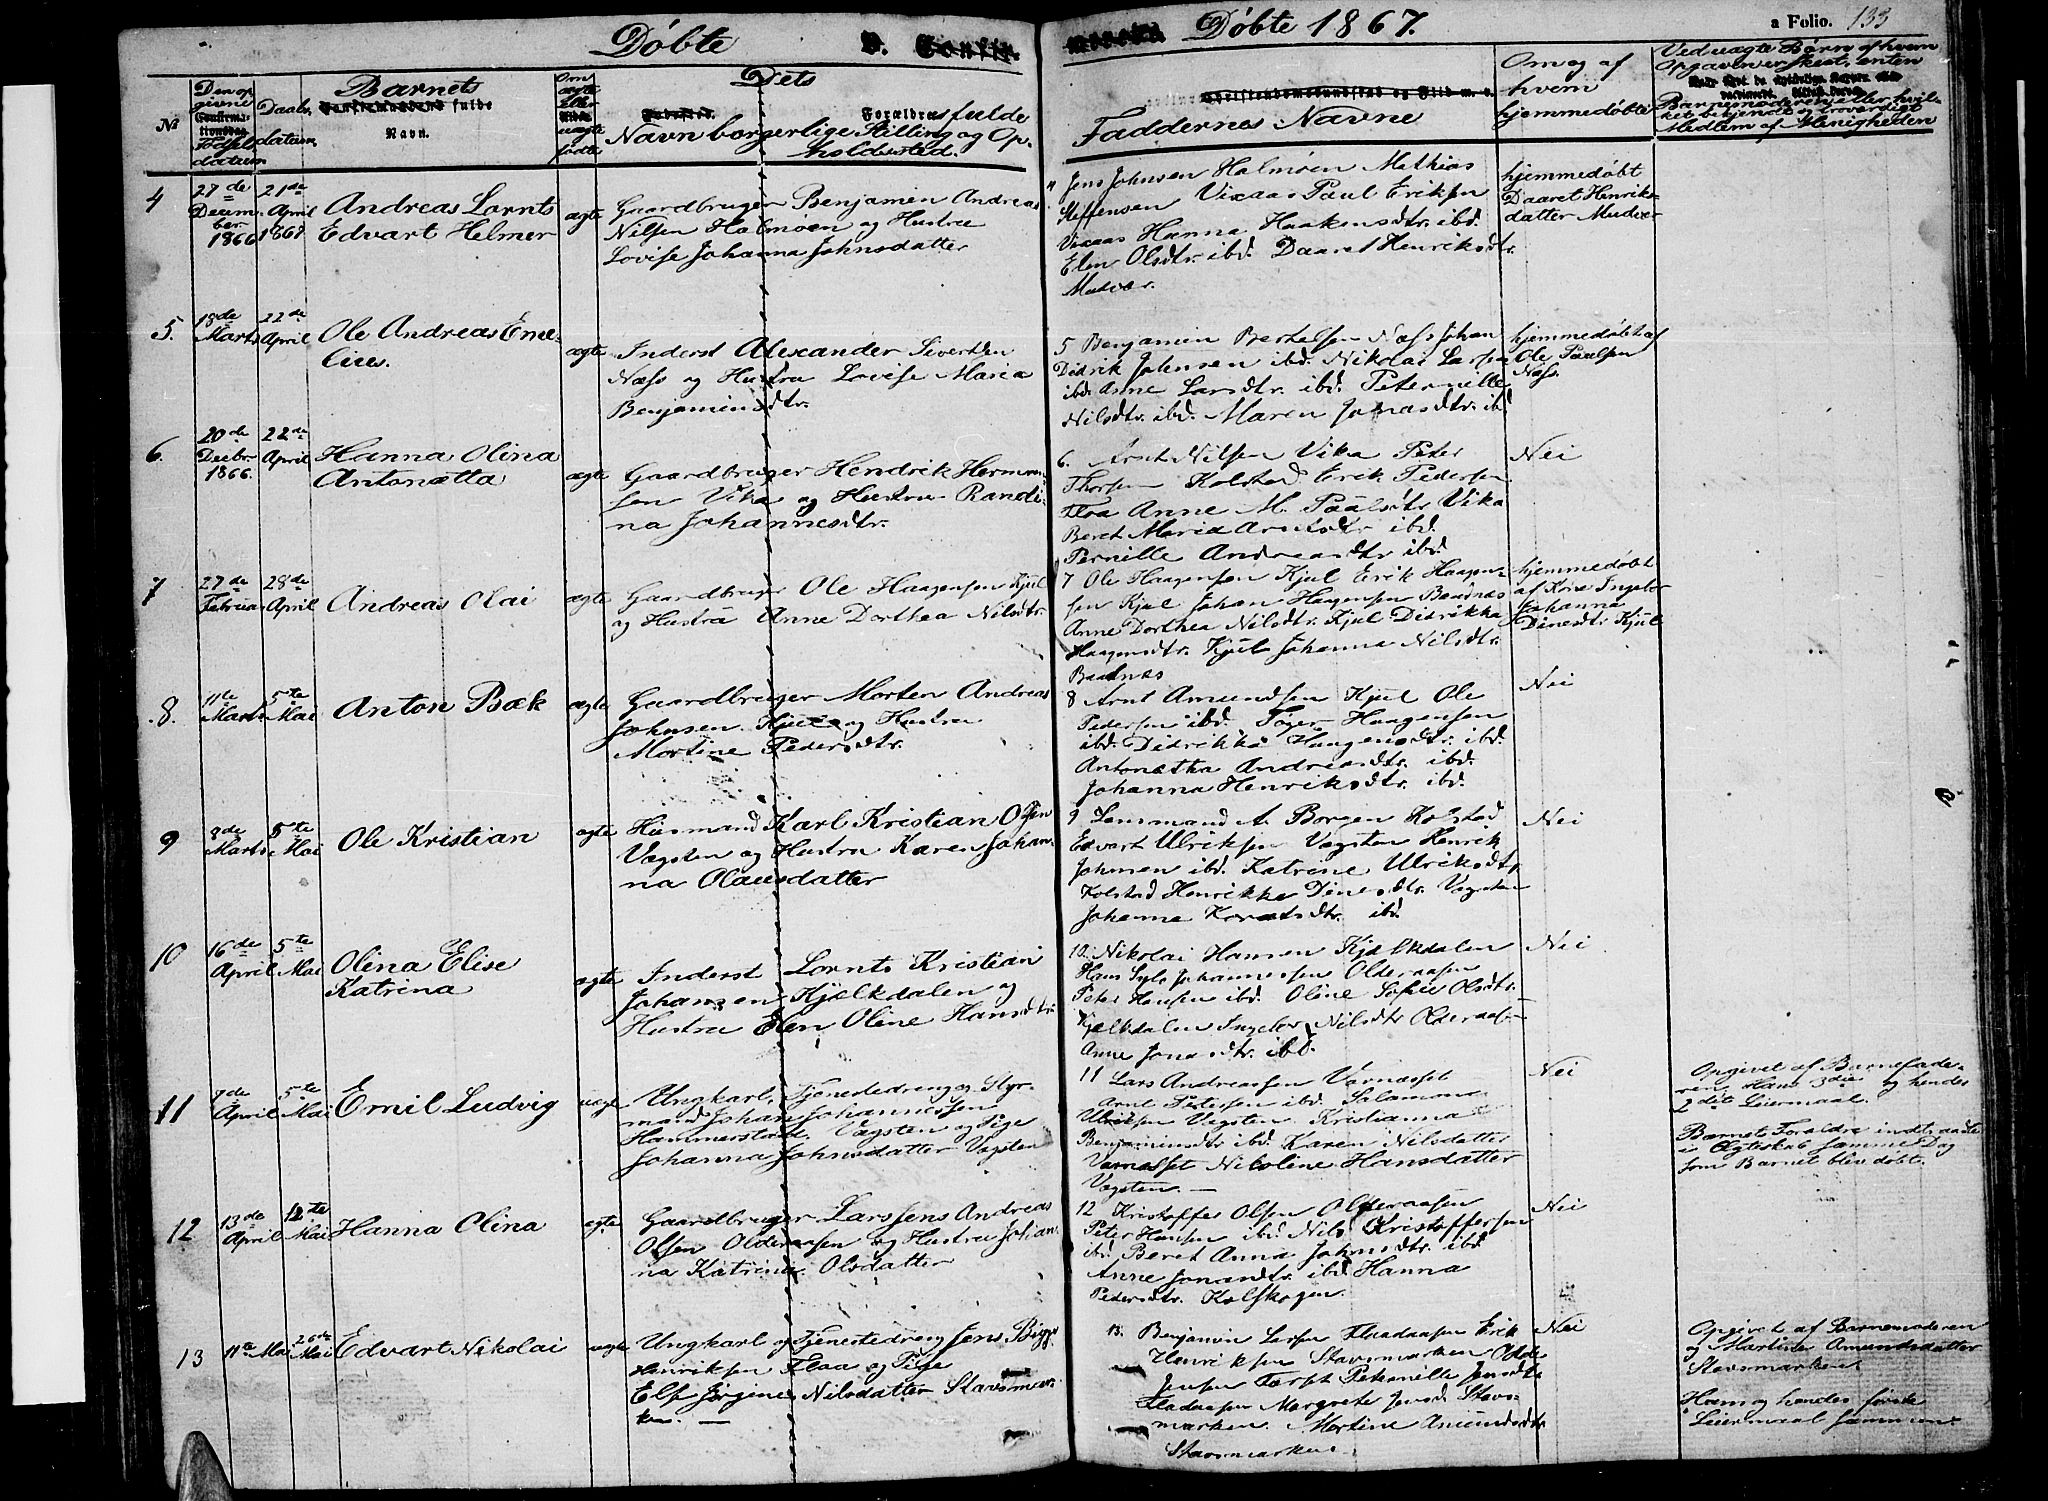 Døbte
Døbte 1867.
a Folio. 133
№
Den op
givne
Fødsels
datum
Daabs
datum
Barnets
fulde
Navn.
Om
ægte
eller
uægte
fødte
Dets
Forældres fulde
Navn borgerlige Stilling og Op-
holdssted.
Faddernes Navne
Om og af
hvem
hjemmedøbte
Ved uægte Børn af hvem
Opgaven er skeet, enten
Barnemoderen eller hvil-
ket bekjendt og troværdigt
Medlem af Menigheden
4
27de
Decem-
ber
1866
21de
April
1867
Andreas Lornts
Edvart Helmer
ægte
Gaardbruger Benjamin Andreas
Nilsen Halmøen og Hustru
Lovise Johanna Johnsdatter
4 Jens Johnsen Halmøen Mathias
Steffensen Vixaas Paul Eriksen
Vixaas Hanna Haakensdtr. ibd.
Elen Olsdtr. ibd. Daaret Henriksdtr.
Mudvær.
hjemmedøbt
Daaret Henriks-
datter Mudvær
5.
18de
Marts
22de
April
Ole Andreas Eme-
lius.
ægte
Inderst Alexander Sivertsen
Næss og Hustru Lovise Maria
Benjaminsdtr.
5 Benjamin Bertelsen Næss Johan
Didrik Johnsen ibd. Nikolai Larsen
ibd. Anne Larsdtr. ibd. Peternille
Nilsdtr. ibd. Maren Jonasdtr. ibd
hjemmedøbt af
Ole Paulsen
Næss.
6.
20de
Decbr.
1866.
22de
April
Hanna Olina
Antonætta
ægte
Gaardbruger Hendrik Herman-
sen Vika og Hustru Randi-
na Johannesdtr.
6. Arnt Nilsen Vika Peter
Thorsen Kolstad Erik Pedersen
Floa Anne M. Paalsdtr Vika
Beret Maria Arntsdtr ibd.
Pernille Andreasdtr ibd.
Nei
7
27de
Februar
28de
April
Andreas Olai
ægte
Gaardbruger Ole Haagensen Kjul
og Hustru Anne Dorthea Nilsdtr.
7 Ole Haagensen Kjul Erik Haagen-
sen Kjul Johan Haagensen Baadnæs
Anne Dorthea Nilsdtr. Kjul Didrikka
Haagensdtr. Kjul Johanna Nilsdtr.
Baadnæs
hjemmedøbt
af Kone Ingebor
Johanna
Dinesdtr Kjul
8.
11te
Marts
5te
Mai
Anton Bæk
ægte
Gaardbruger Morten Andreas
Johnsen Kjul og Hustru
Martine Pedersdtr.
8 Arnt Amundsen Kjul Ole
Pedersen ibd. Tøger Haagensen
ibd. Didrikka Haagensdtr. ibd.
Antonætha Andreasdtr. ibd.
Johanna Henriksdtr. ibd.
Nei
9
8de
Marts
5te
Mai
Ole Kristian
ægte
Huusmand Karl Kristian Olsen
Vægsten og Hustru Karen Johan-
na Olausdatter
9 Lensmand A. Borgen Kolstad
Edvart Ulriksen Vægsten Henrik
Johnsen ibd. Katrine Ulriksdtr
Kolstad Henrikke Dinesdtr. Vægsten
Johanna ibd.
Nei
10
16de
April
5te
Mai
Olina Elise
Katrina
ægte
Inderst Lornts Kristian
Johansen Kjælkdalen og
Hustru Elen Oline Hansdtr.
10. Nikolai Hansen Kjælkdalen
Hans Johannessen Olderaasen
Peter Hansen ibd. Oline Sofie Olsdtr.
Kjælkdalen Ingebor Nilsdtr Olderaas-
Anne Jonasdtr. ibd.
Nei
11
7de
April
5te
Mai
Emil Ludvig
uægte
Ungkarl, Tjenestedreng og Styr-
mand Johan Johannessen
Hammerstad Vægsten og Pige
Johanna Johnsdatter Vægsten
11 Lars Andreassen Varnæsset
Arnt Petersen ibd. Salamon
Ulriksen Vegsten Kristianna
Benjaminsdtr ibd. Karen Nilsdatter
Varnæsset Nikoline Hansdatter
Vægsten. —
Nei
Opgivet af Barnefade-
ren, Hans 3die og hendes
2det Leiermaal.
Barnets Forældre indtraadte
i Ægteskab samme Dag
som Barnet blev døbt.
12
13de
April
12te
Mai
Hanna Olina
ægte
Gaardbruger Larssens Andreas
Olsen Olderaasen og Hustru Johan-
na Katrina Olsdatter
12 Kristoffer Olsen Olderaasen
Peter Hansen ibd Nils Kristoffersen
ibd. Beret Anna Johnsdtr. ibd
Anne Jonasdtr. ibd Hanna
Pedersdtr. Kolskogen.
Nei
13
11te Mai
26de
Mai
Edvart Nikolai
uægte
Ungkarl og Tjenestedreng Jens Bigge
Henriksen Flaa og Pige
Else Jørgine Nilsdatter Stavsmar-
ken. —
13. Benjamin Larsen Fladaasen Erik
Henriksen Stavsmarken
Jensen Tarst Peternille Jensdtr
Fladaasen Margrete Jensd. Stavs-
marken. Martine Amundsdtr
Stavsmarken.
Nei
Opgivet af Barnemoderen
og Martine Amundsdatter
Stavsmarken
Hans og hendes første
Leiermaal sammen